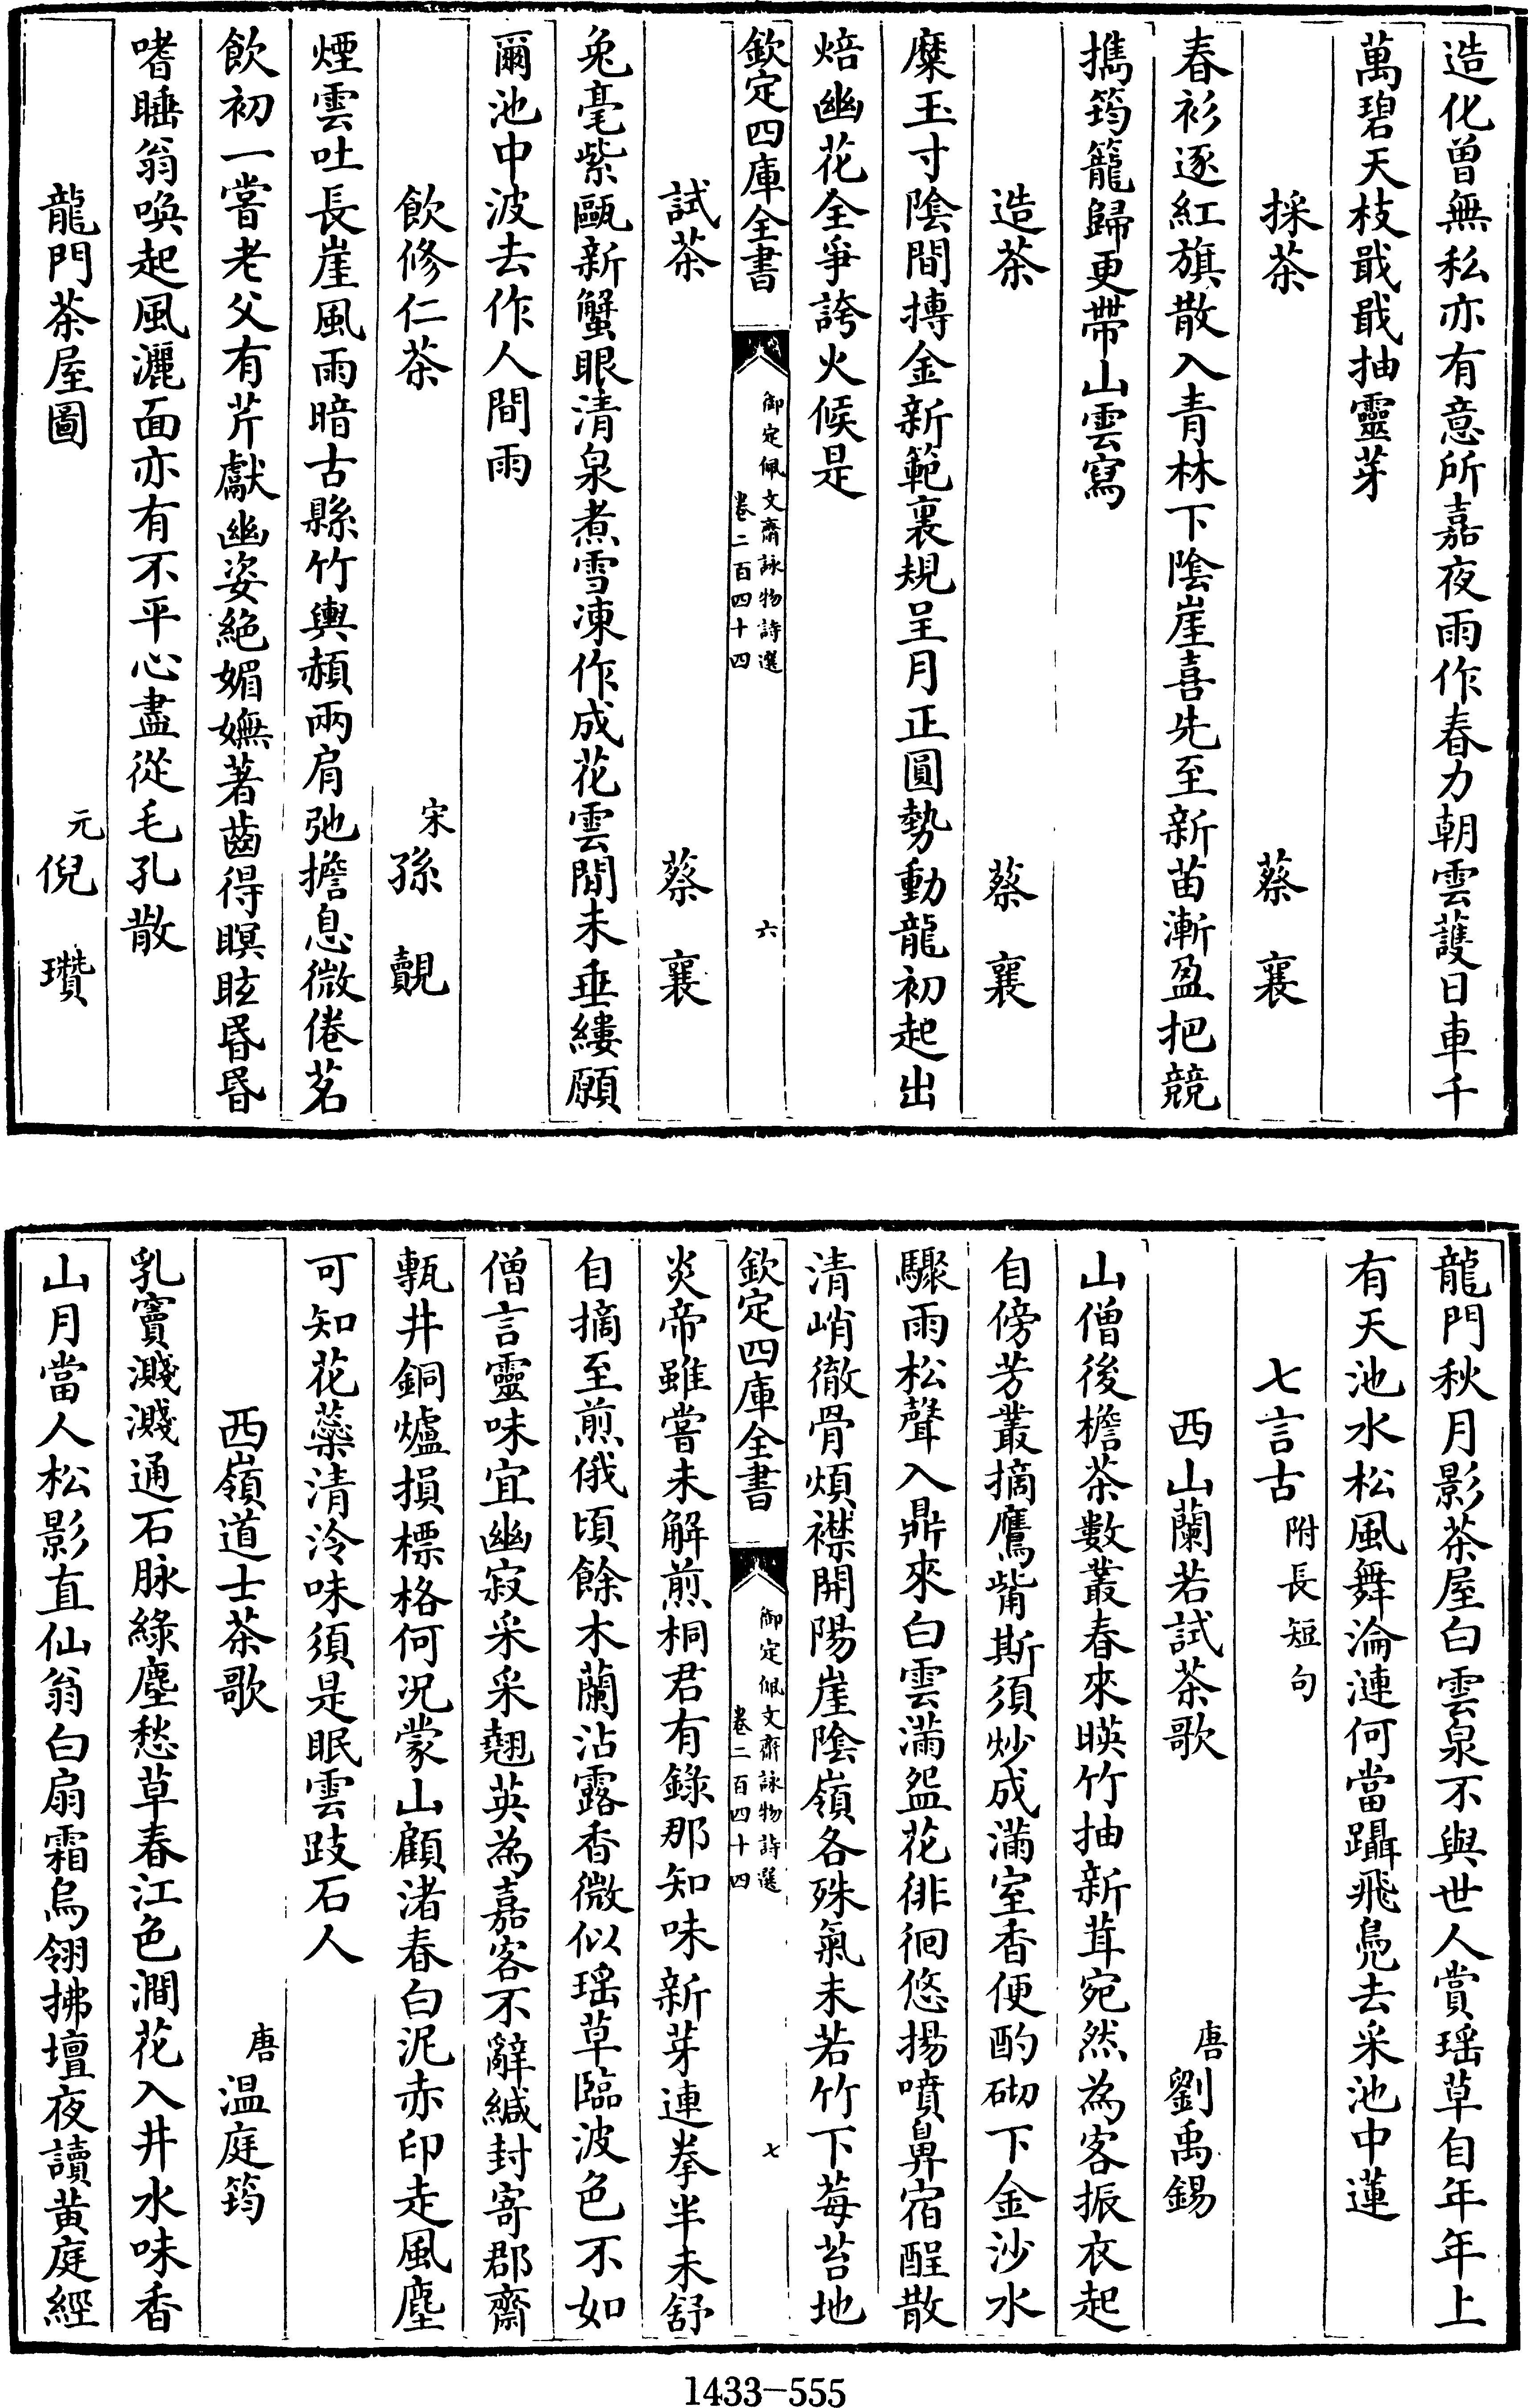 造化曾無私亦有意所嘉夜雨作春力朝雲護日車千
萬碧天枝戢戢抽靈芽
採茶 蔡襄
春衫逐紅旗散入青林下陰崖喜先至新苗漸盈把競
擕筠籠歸更帶山雲寫
造茶 蔡襄
糜玉寸陰間摶金新範裏規呈月正圓勢動龍初起出
焙幽花全爭誇火候是
欽定四庫全書 御定佩文齋詠物詩選 卷二百四十四 六
試茶 蔡襄
兔毫紫甌新蟹眼清泉煮雪凍作成花雲閒未垂縷願
爾池中波去作人間雨
飲修仁茶 宋孫覿
煙雲吐長崖風雨暗古縣竹輿赬兩肩弛擔息微倦茗
飲初一嘗老父有芹獻幽姿絕媚嫵著齒得瞑眩昬昬
嗜睡翁喚起風灑面亦有不平心盡從毛孔散
龍門茶屋圖 元倪瓚
龍門秋月影茶屋白雲泉不與世人賞瑤草自年年上
有天池水松風舞淪漣何當躡飛鳧去采池中蓮
七言古 附長短句
西山蘭若試茶歌 唐劉禹錫
山僧後檐茶數叢春來暎竹抽新茸宛然為客振衣起
自傍芳叢摘鷹觜斯須炒成滿室香便酌砌下金沙水
驟雨松聲入鼎來白雲滿盌花徘徊悠揚噴鼻宿酲散
清峭徹骨煩襟開陽崖陰嶺各殊氣未若竹下莓苔地
欽定四庫全書 御定佩文齋詠物詩選 卷二百四十四 七
炎帝雖嘗未解煎桐君有錄那知味新芽連拳半未舒
自摘至煎俄頃餘木蘭沾露香微似瑤草臨波色不如
僧言靈味宜幽寂采采翹英為嘉客不辭緘封寄郡齋
甎井銅爐損標格何況蒙山顧渚春白泥赤印走風塵
可知花蘂清泠味須是眠雲跂石人
西嶺道士茶歌 唐溫庭筠
乳竇濺濺通石脉綠塵愁草春江色澗花入井水味香
山月當人松影直仙翁白扇霜烏翎拂壇夜讀黃庭經
1433-555